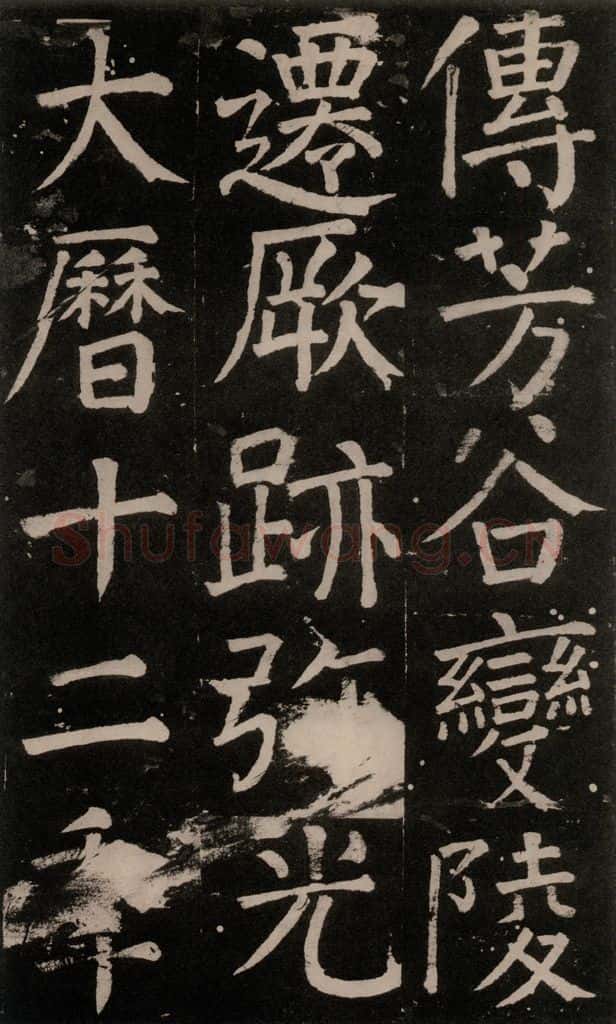 傳芳谷變陵
遷厥跡弥光
大曆十二年
Shufawang.CN